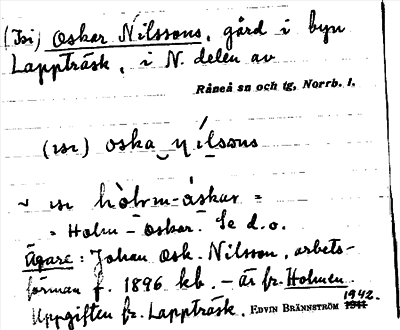 (Isi) Oskar Nilssons, gård i byn
Lappträsk, i N. delen av
Råneå sn och tg, Norrb. l.
(ısı) oska nílsons
~ ısı hòlm-àskar =
= Holm-Oskar. Se d.o.
Ägare: Johan Osk. Nilsson, arbets-
förman f. 1896 kb. – är fr. Holmen.
Uppgiften fr. Lappträsk. EDVIN BRÄNNSTRÖM 1942.
1941